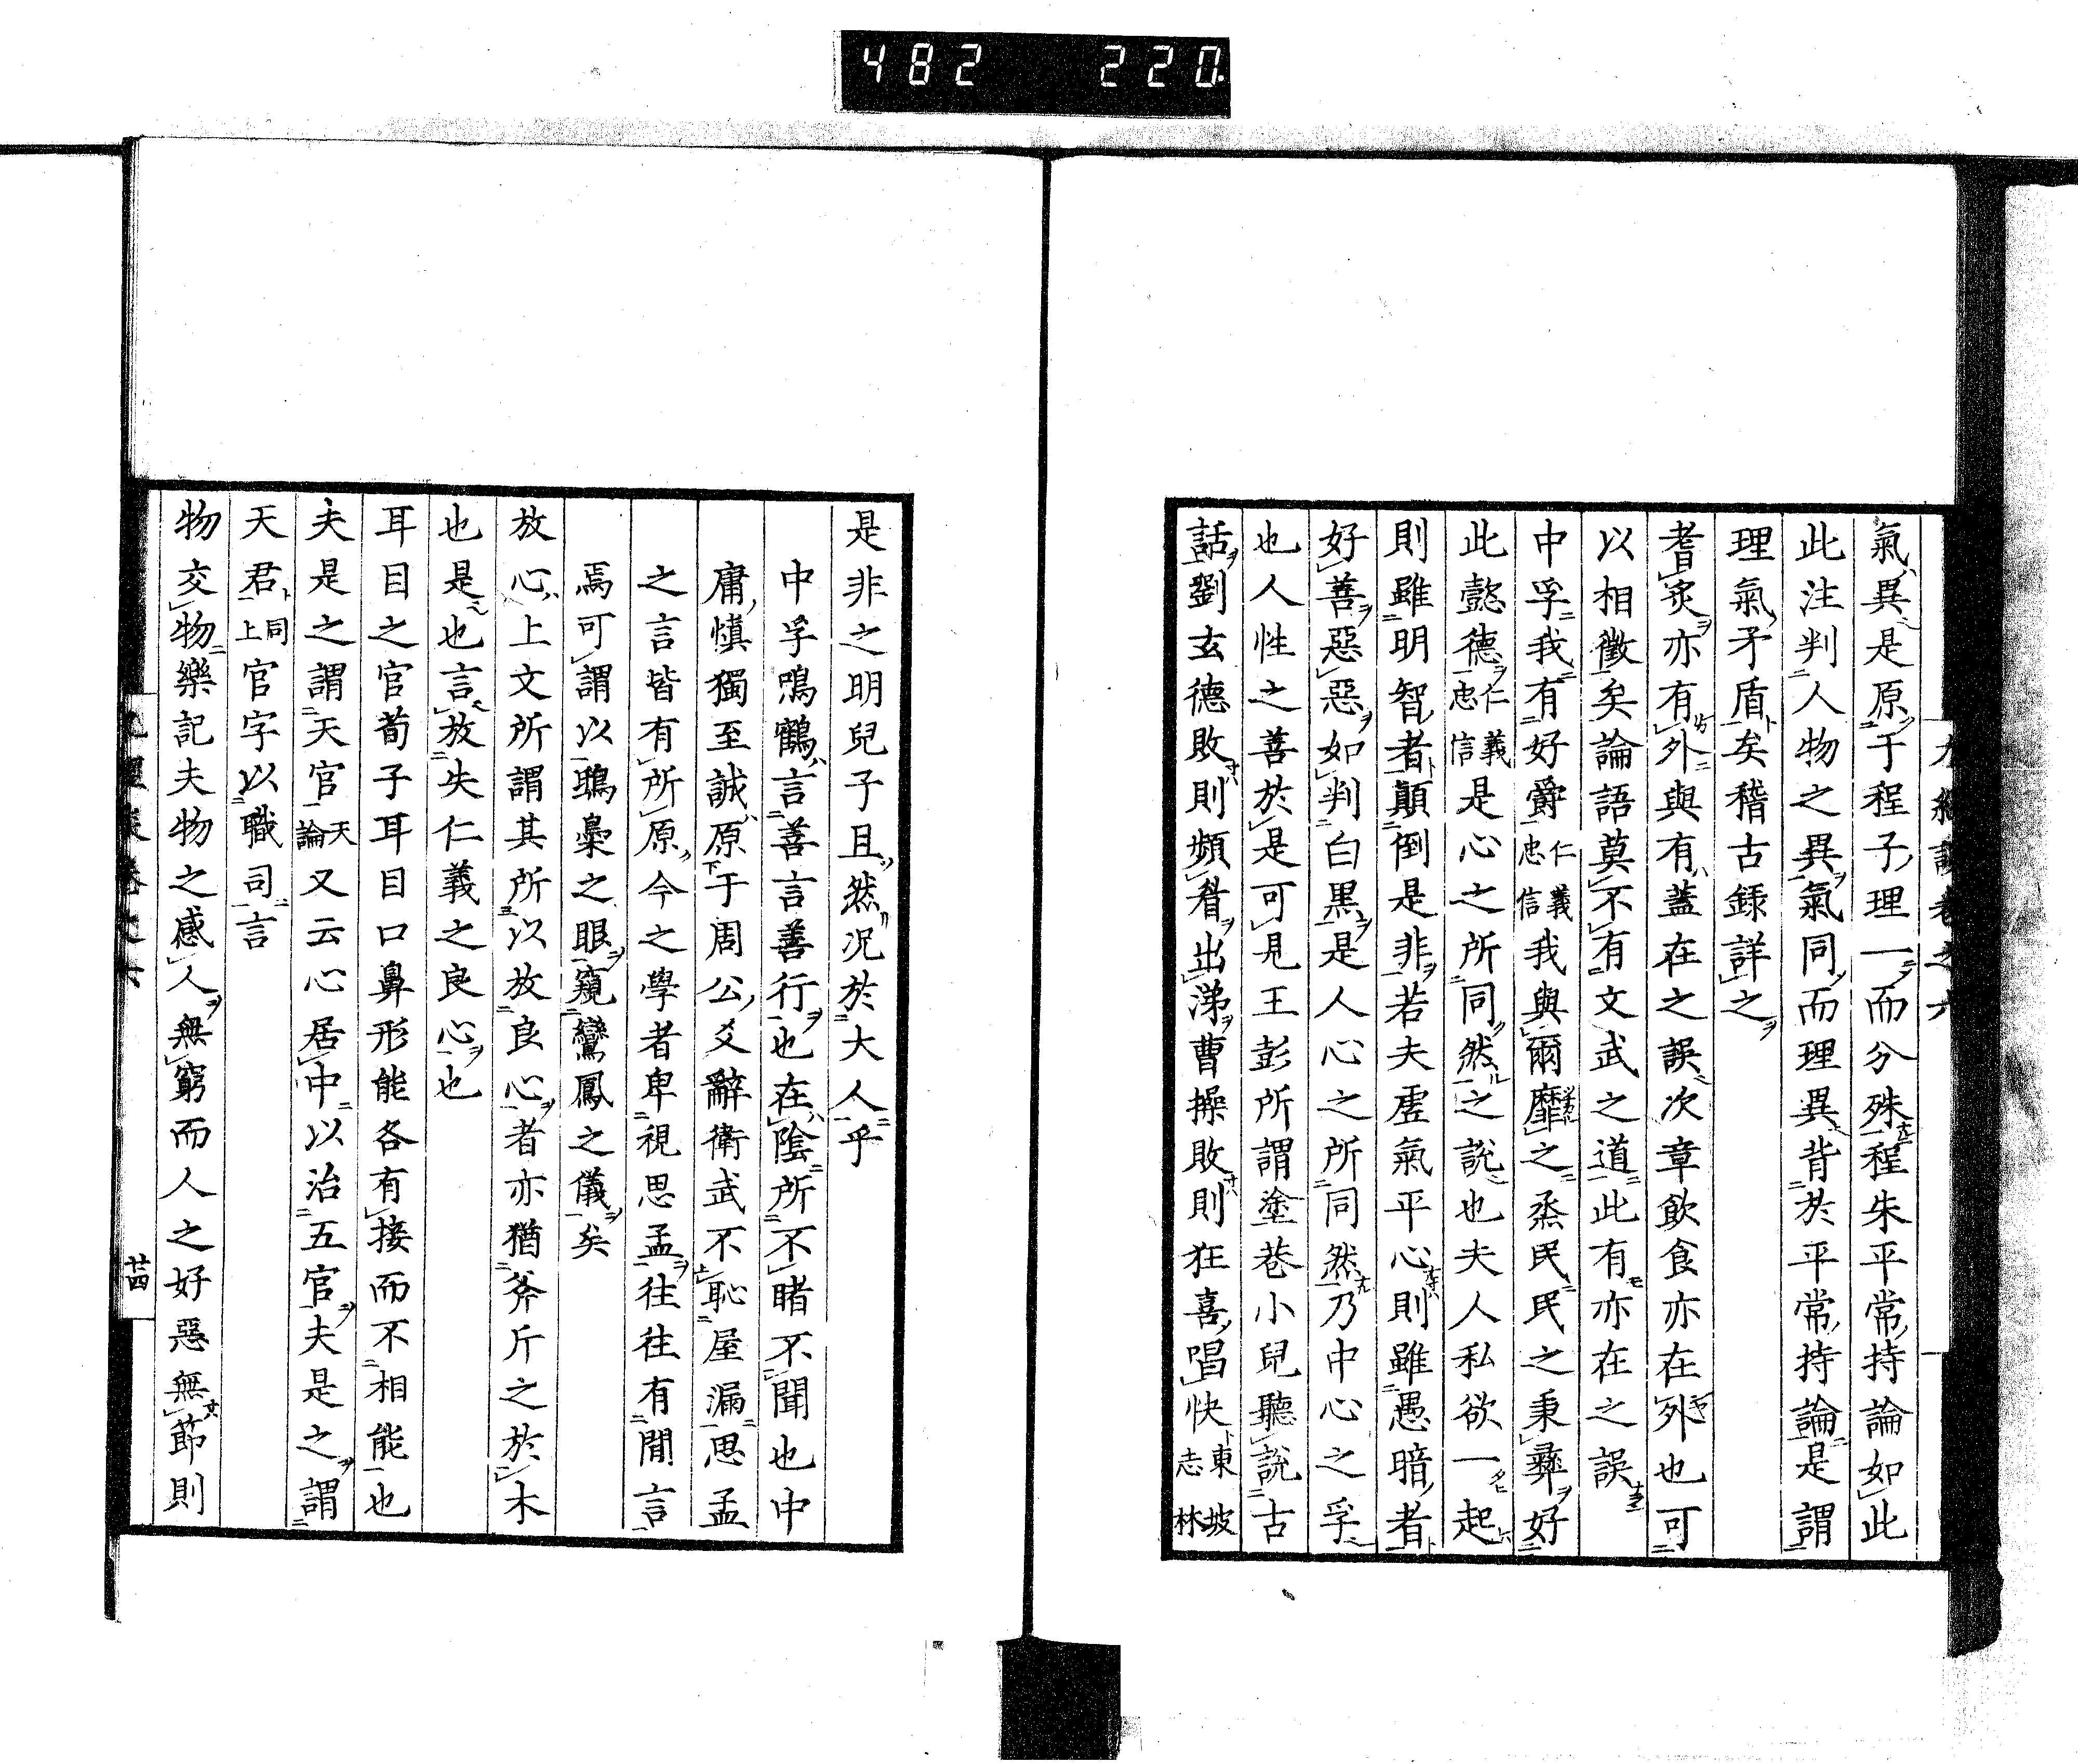 482 220
九經談卷之六
氣異是原于程子理一而分殊程朱平常持論如此
此注判人物之異氣同而理異背於平常持論是謂
理氣矛盾矣稽古錄詳之
耆炙亦有外與有蓋在之誤次章飲食亦在外也可
以相徵矣論語莫不有文武之道此有亦在之誤
中孚我有好爵仁義忠信我與爾靡之烝民民之秉彝好
此懿德仁義忠信是心之所同然之說也夫人私欲一起
則雖明智者顛倒是非若夫虛氣平心則雖愚暗者
好善惡惡如判白黑是人心之所同然乃中心之孚
也人性之善於是可見王彭所謂塗巷小兒聽說古
話劉玄德敗則頻眉出涕曹操敗則狂喜唱快東坡志林
是非之明兒子且然况於大人乎
中孚鳴鶴言善言善行也在陰所不睹不聞也中
庸慎獨至誠原于周公爻辭衛武不恥屋漏思孟
之言皆有所原今之學者卑視思孟往往有閒言
焉可謂以鴟梟之眼窺鸞鳳之儀矣
放心上文所謂其所以放良心者亦猶斧斤之於木
也是也言放失仁義之良心也
耳目之官荀子耳目口鼻形能各有接而不相能也
夫是之謂天官天論又云心居中以治五官夫是之謂
天君同上官字以職司言
物交物樂記夫物之感人無窮而人之好惡無節則
九經談卷之六
廿四